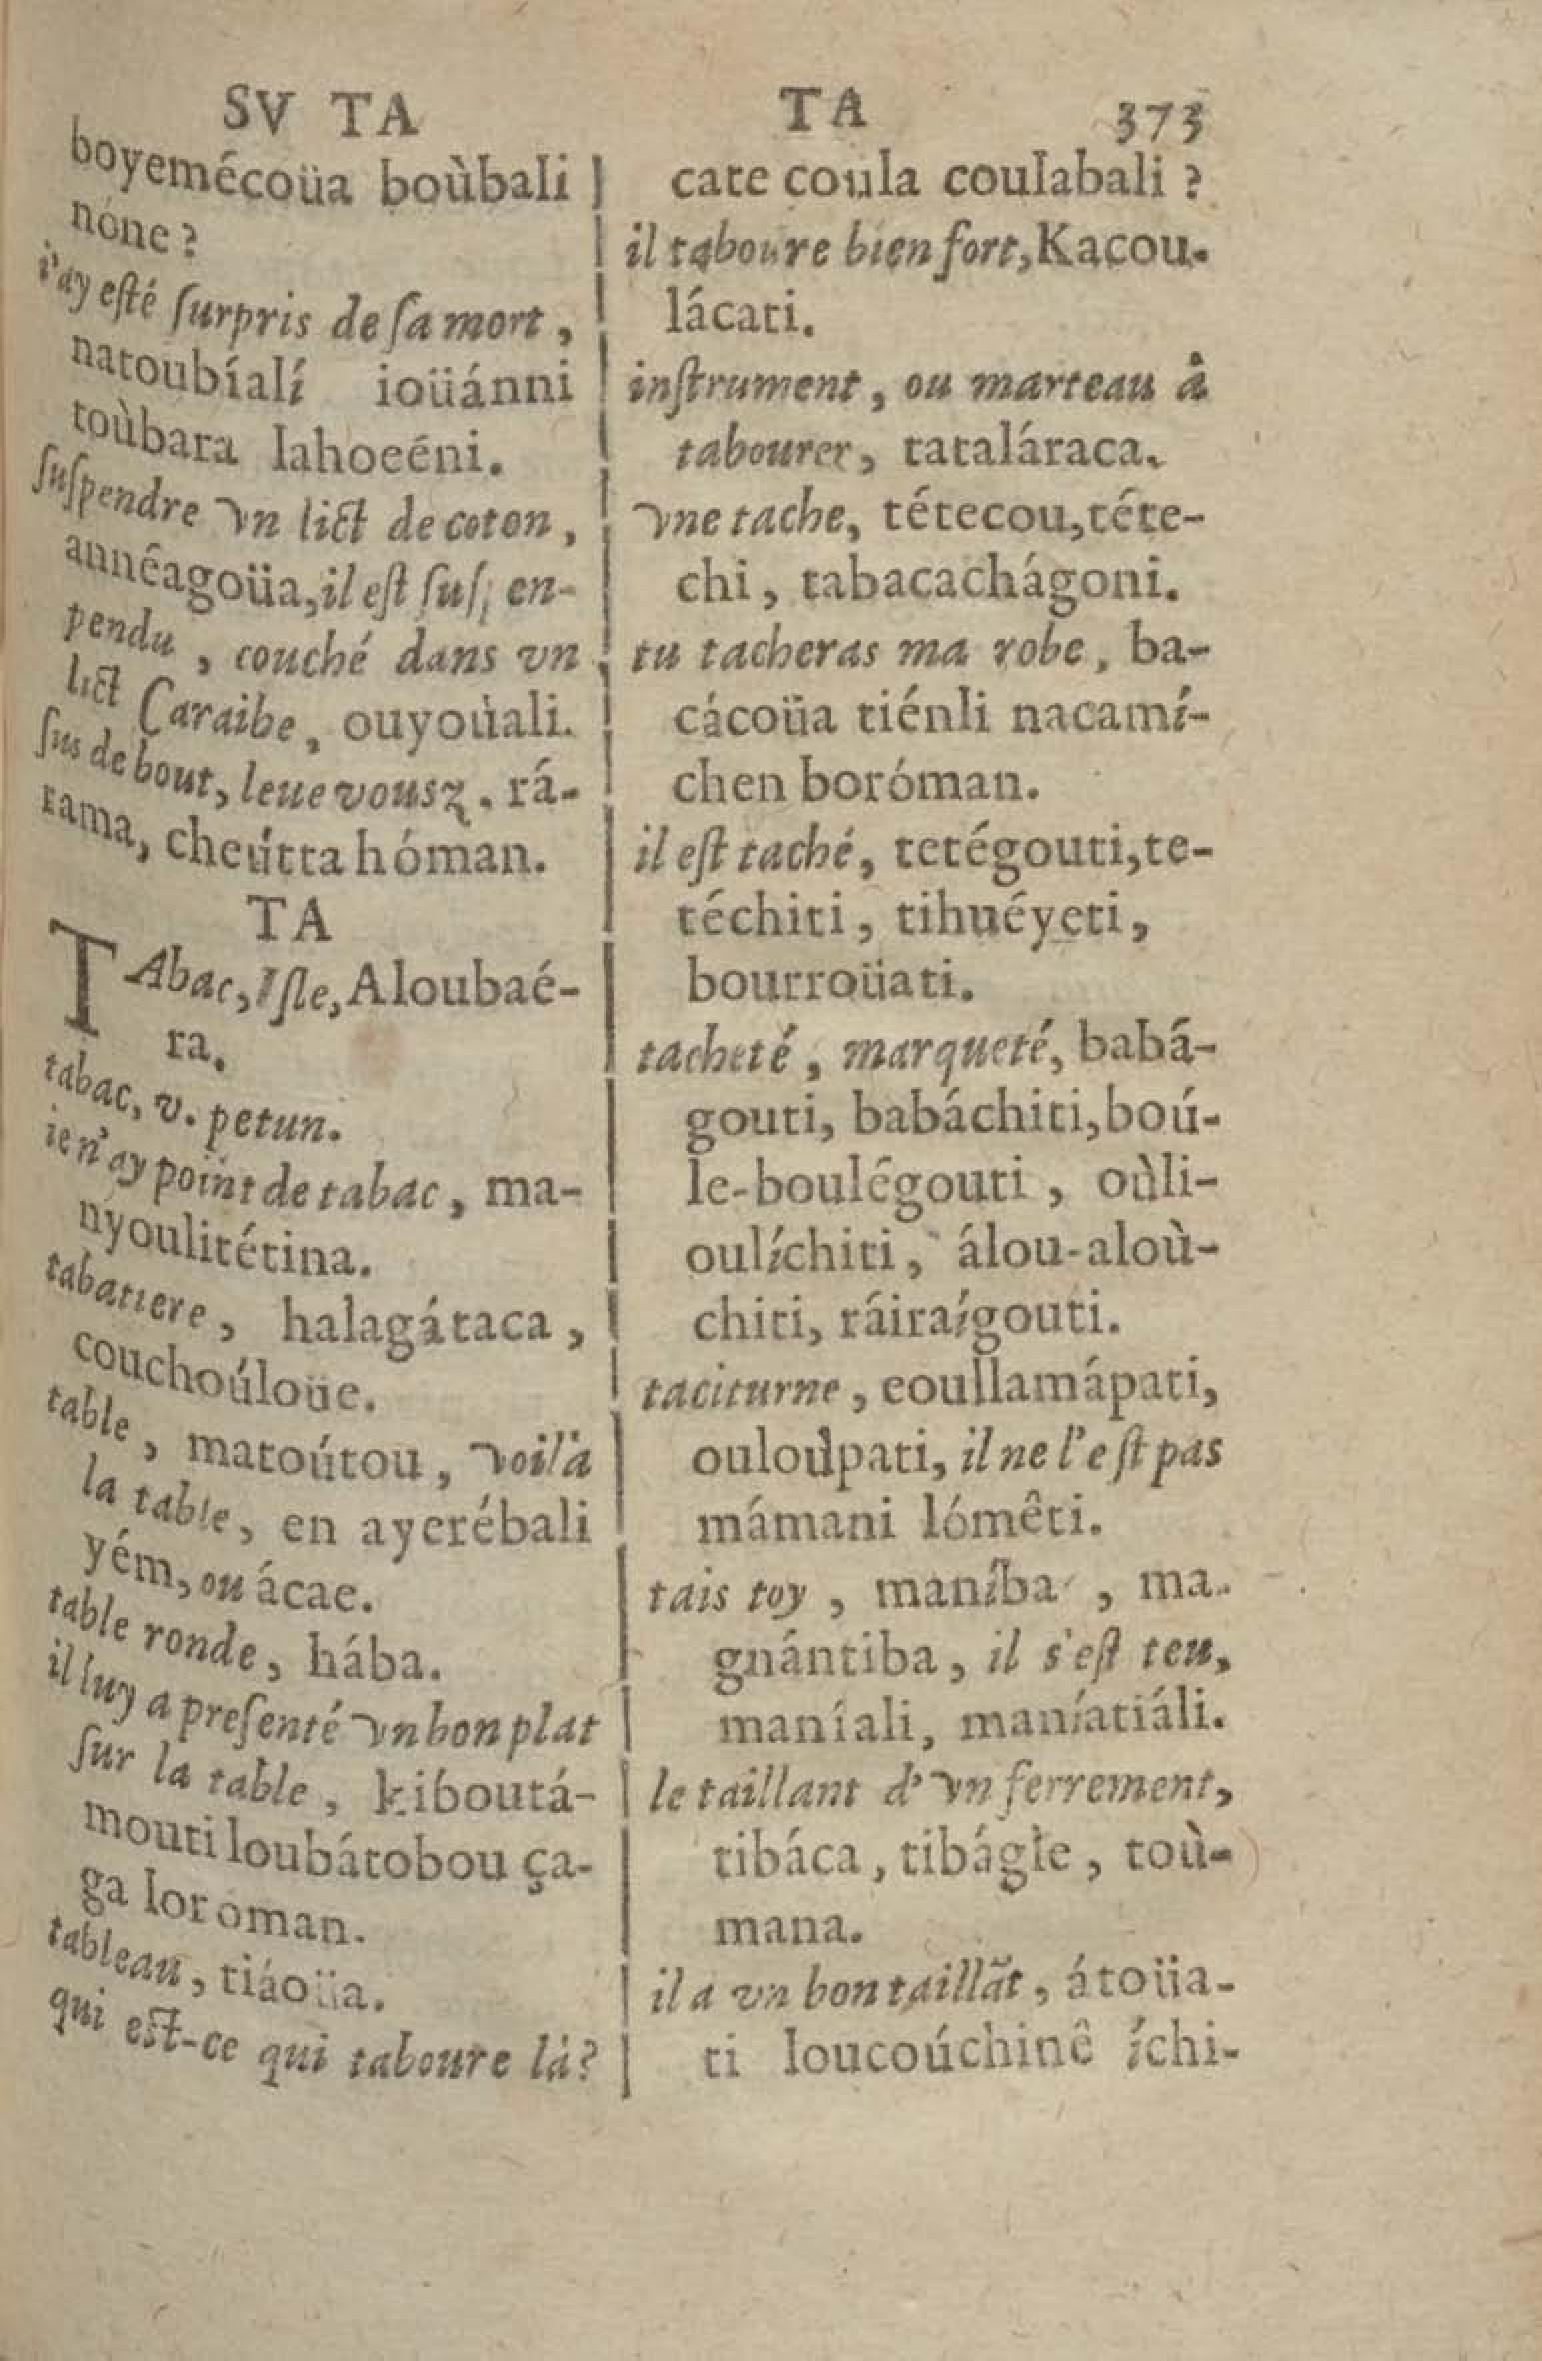 SV TA
boyemécoüa boùbali
nóne?
i'ay esté ſurpris de ſa mort,
natoubíalí ioüánni
toùbara lahoeéni.
ſuſpendre vn lict de coton,
annéagoüa, il est ſuſpen-
pendu, couché dans vn
lict Caraibe, ouyoùali.
ſus de bout, leue vousz. rá-
rama, cheútta hóman.
TA
TAbac, Iſle, Aloubaé-
ra.
tabac, v. petun.
ie n'ay point de tabac, ma-
nyoulitétina.
tabatiere, halagátaca,
couchoúloüe.
table, matoútou, voilà
la table, en ayerébali
yém, ou ácae.
table ronde, hába.
il luy a preſenté vn bon plat
ſur la table, kiboutá-
mouti loubátobou ça-
ga loroman.
tableau, tiáoüa.
qui est-ce qui taboure là?
TA 373
cate coula coulabali?
il taboure bien fort, Kacou-
lácati.
inſtrument, ou marteau à
tabourer, tataláraca.
vne tache, tétecou, téte-
chi, tabacachágoni.
tu tacheras ma robe, ba-
cácoüa tiénli nacamí-
chen boróman.
il eſt taché, tetégouti, te-
téchiti, tihuéyeti,
bourroüati.
tacheté, marqueté, babá-
gouti, babáchiti, boú-
le-boulégouti, oùli-
oulíchiti, álou-aloù-
chiti, ráiraígouti.
taciturne, eoullamápati,
ouloùpati, il ne l'eſt pas
mámani lómêti.
tais toy, maníba, ma-
gnántiba, il s'eſt teu,
maníali, maníatiáli.
le taillant d'vn ferrement,
tibáca, tibágle, toù-
mana.
il a vn bon taillãt, átoüa-
ti loucoúchinê íchi-